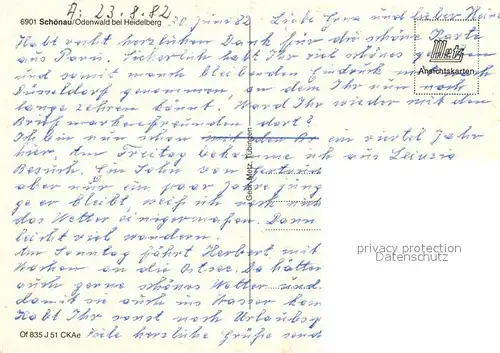 A: 23.8.82
6901 Schönau/Odenwald bei Heidelberg
30. Juni 82
Liebe Ena und lieber Hein
Habt recht herzlichen Dank für die schöne Karte
aus Paris. Sicherlich habt Ihr viel schönes
und somit manch bleibenden Eindruck mit nach
Düsseldorf genommen an dem Ihr nun noch
lange zehren könnt. Ward Ihr wieder mit den
Briefmarkenfreunden dort?
Ich bin nun schon ein viertel Jahr
hier. Am Freitag bekomme ich aus Leipzig
Besuch. Ein Sohn von Gertrud
aber nur ein paar Jahre jung
ger er bleibt weiß ich noch
das Wetter einigermaßen. Dann
leicht viel wandern.
Am Sonntag fährt Herbert mit
Wochen an die Ostsee. Da hätten
auch gerne schönes Wetter und
damit sie auch ins Wasser kön
Habt Ihr sonst noch Urlaubsp
Viele herzliche Grüße send
Metz
Ansichtskarten
Gebr. Metz, Tübingen
privacy protection
Datenschutz
Of 835 J 51 CKAe